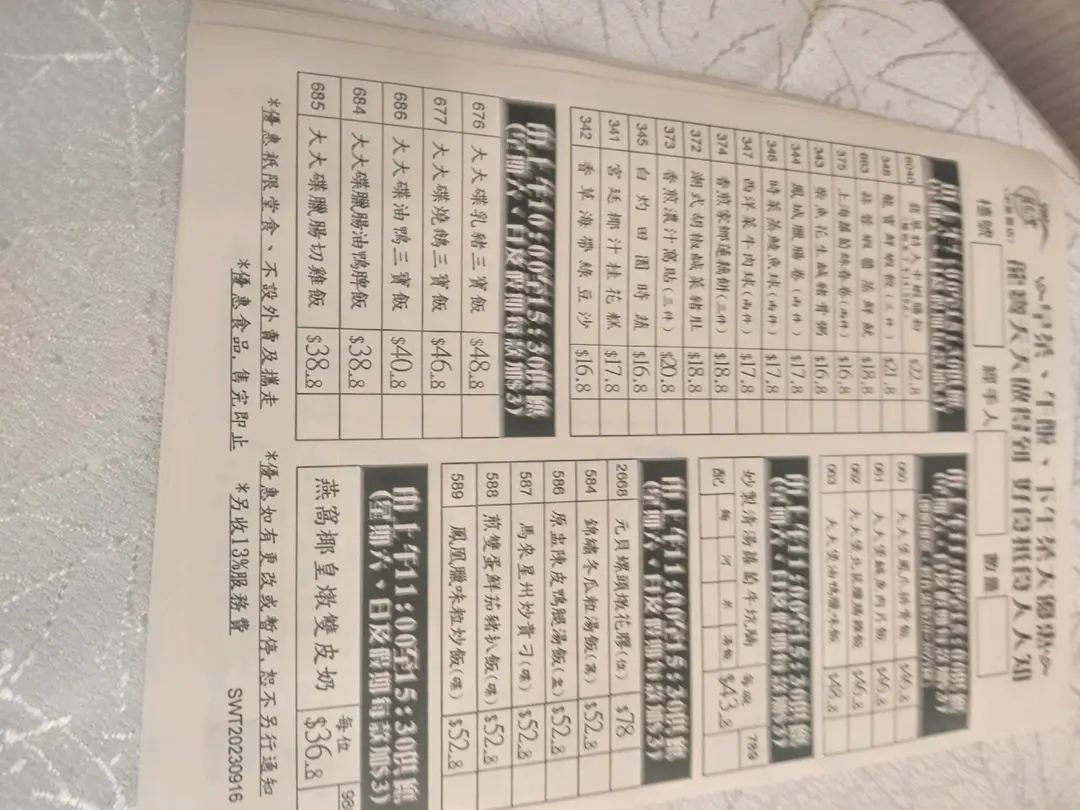 早茶、午飯、下午茶大圍樂
龍寶天天天做得到 好食抵食人人知
檯號
經手人
數量
348 龍寶鮮蝦餃(三件) $21.8
663 蒜蓉蝦醬蒸鮮魷 $18.8
375 上海蘿蔔絲卷(兩件) $16.8
343 柴魚花生鹹豬骨粥 $16.8
344 鳳城臘腸卷(兩件) $17.8
346 時菜蒸鯪魚球(兩件) $17.8
347 西洋菜牛肉球(兩件) $17.8
374 香煎家鄉蓮藕餅(三件) $18.8
372 潮式胡椒鹹菜豬肚 $18.8
373 香煎濃汁窩貼(三件) $20.8
345 白灼田園時蔬 $16.8
341 宮廷椰汁桂花糕 $17.8
342 香草海帶綠豆沙 $16.8
由上午10:00至15:30供應
(星期六、日及假期每款加$3)
676 大大碟乳豬三寶飯 $48.8
677 大大碟燒鵝三寶飯 $46.8
686 大大碟油鴨三寶飯 $40.8
684 大大碟臘腸油鴨脾飯 $38.8
685 大大碟臘腸切雞飯 $38.8
由上午11:00至15:30供應
(星期六、日及假期每款加$3)
妙製清湯蘿蔔牛坑腩 每碗 $43.8 789
配 河 米 湯飯
由上午11:00至15:30供應
(星期六、日及假期每款加$3)
2668 元貝螺頭燉花膠(位) $78
584 錦繡冬瓜粒湯飯(窩) $52.8
586 原盅陳皮鴨腿湯飯(盅) $52.8
587 馬來星州炒貴刁(碟) $52.8
588 煎雙蛋鮮茄豬扒飯(碟) $52.8
589 鳳凰臘味粒炒飯(碟) $52.8
由上午11:00至15:30供應
(星期六、日及假期每款加$3)
燕窩椰皇燉雙皮奶 每位 $36.8
*優惠祇限堂食、不設外賣及攜走
*優惠如有更改或暫停,恕不另行通知
*優惠食品,售完即止
*另收13%服務費
SWT20230916